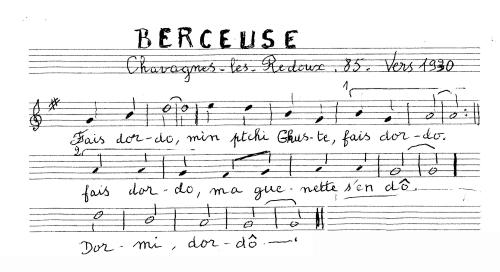 BERCEUSE
Chavagnes-les-Redoux. 85. Vers 1930
1
Fais dor-do, min ptchi Ghus-te, fais dor-do.
2
fais dor-do, ma gue-nette s'en dô.
Dor-mi, dor-dô